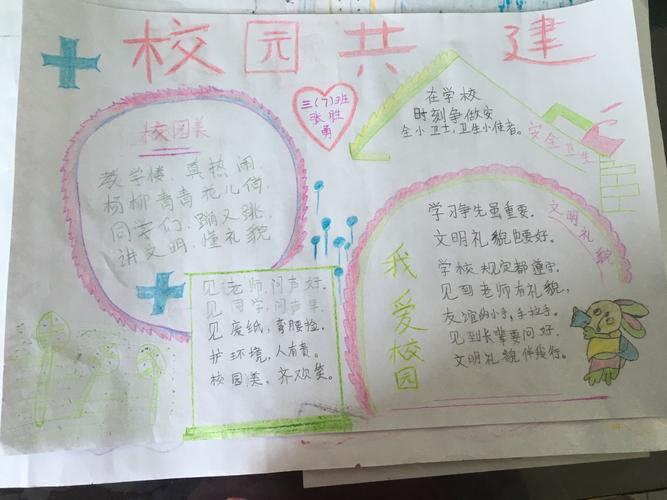 校园共建
三(7)班
张胜
勇
校园美
教学楼，真热闹，
杨柳青青花儿俏
同学们，蹦又跳
讲文明，懂礼貌
在学校
时刻争做安
全小卫士，卫生小使者。
安全卫生
见老师，问声好。
见同学，问声早
见废纸，弯腰捡。
护环境，人有责。
校园美，齐欢笑。
我爱校园
文明礼貌
学习争先虽重要。
文明礼貌也要好。
学校规定都遵守，
见到老师有礼貌，
友谊的小手，手拉手。
见到长辈要问好。
文明礼貌伴我行。